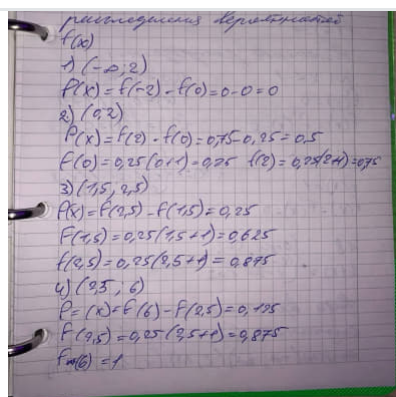 распределения вероятностей
f(x)
1) (-∞; 2)
P(x) = f(-2) - f(0) = 0 - 0 = 0
2) (0,2)
P(x) = f(2) - f(0) = 0,75 - 0,25 = 0,5
f(0) = 0,25(0+1) = 0,25 f(2) = 0,25(2+1) = 0,75
3) (1,5; 2,5)
P(x) = f(2,5) - f(1,5) = 0,25
F(1,5) = 0,25(1,5+1) = 0,625
f(2,5) = 0,25(2,5+1) = 0,875
4) (2,5; 6)
P = (x) = f(6) - f(2,5) = 0,125
f(2,5) = 0,25(2,5+1) = 0,875
F(6) = 1